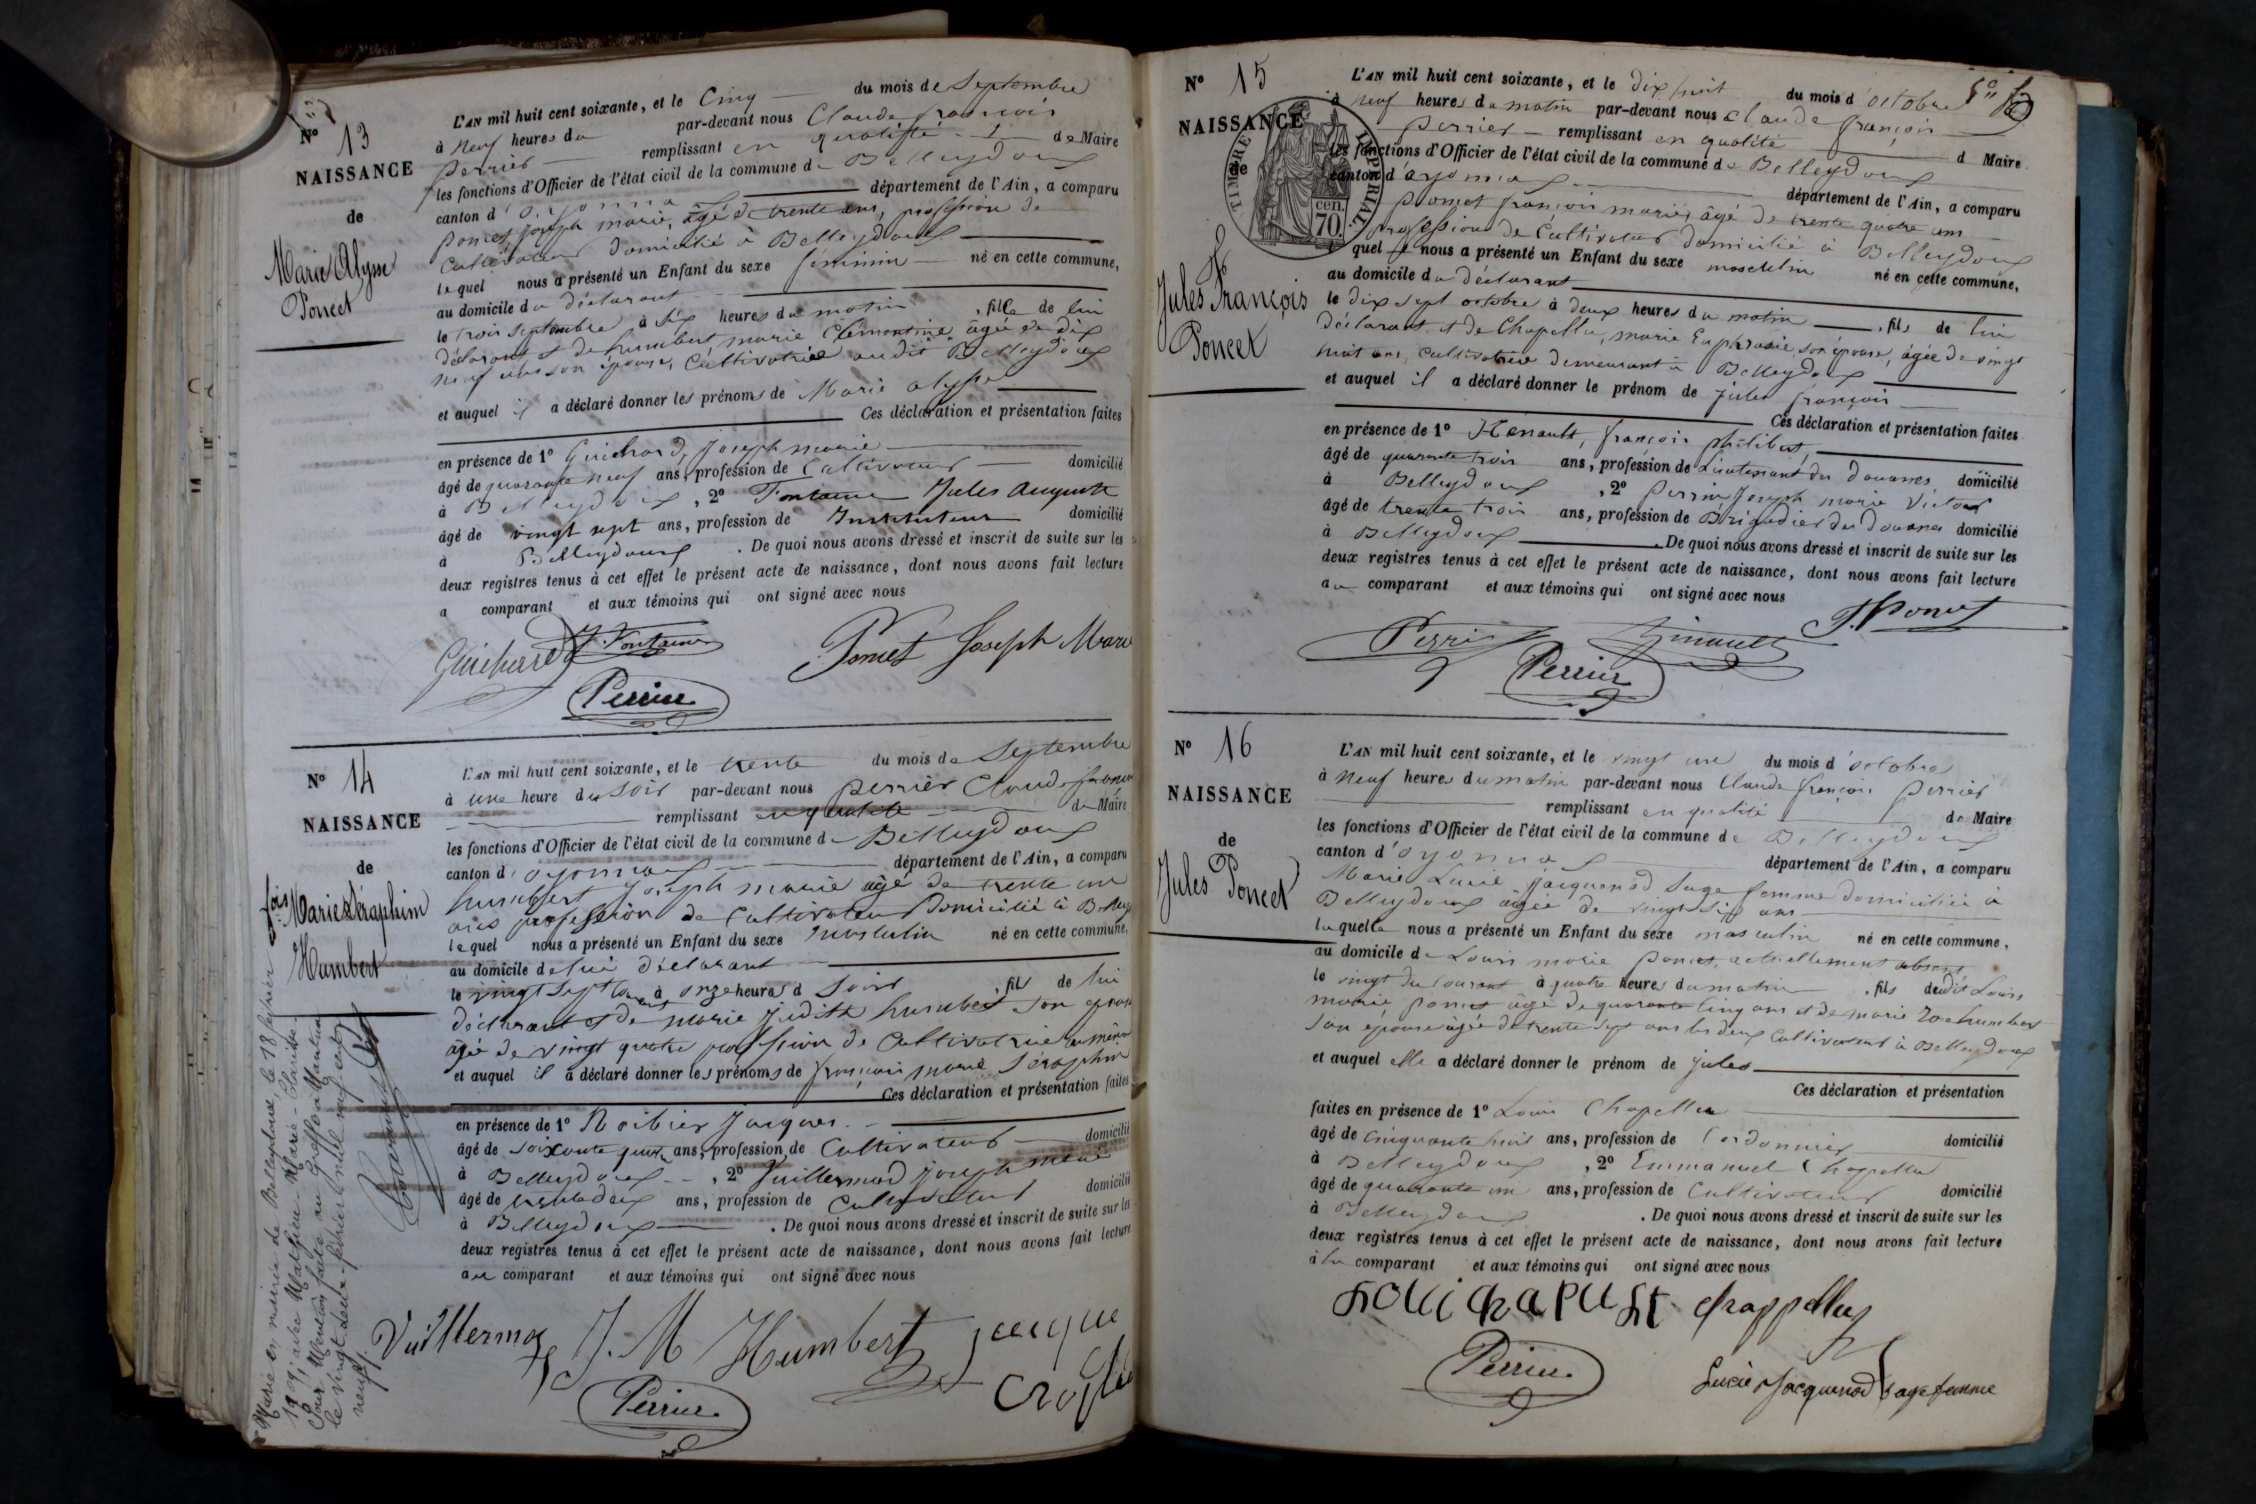 N° 13
NAISSANCE
de
Marie Alysse
Poncet
L'AN mil huit cent soixante, et le Cinq du mois de Septembre
à neuf heures du par-devant nous Claude françois
perrier remplissant en qualité de Maire
les fonctions d'Officier de l'état civil de la commune de Belleydoux
canton d'oyonnax département de l'Ain, a comparu
poncet joseph marie, âgé de trente ans, profession de
Cultivateur domicilié à Belleydoux
lequel nous a présenté un Enfant du sexe féminin né en cette commune,
au domicile du déclarant
le trois septembre à six heures du matin, fille de lui
déclarant et de humbert marie Clémentine âgée de dix
neuf ans son épouse, Cultivatrice audit Belleydoux
et auquel il a déclaré donner les prénoms de Marie alysse
Ces déclaration et présentation faites
en présence de 1° Guichard, joseph marie
âgé de quarante neuf ans, profession de Cultivateur domicilié
à Belleydoux, 2° Fontaine Jules Auguste
âgé de vingt sept ans, profession de Instituteur domicilié
à Belleydoux. De quoi nous avons dressé et inscrit de suite sur les
deux registres tenus à cet effet le présent acte de naissance, dont nous avons fait lecture
a comparant et aux témoins qui ont signé avec nous
Guichard J. Fontaine Poncet Joseph Marie
Perrier
N° 14
NAISSANCE
de
fois Marie Séraphim
Humbert
L'AN mil huit cent soixante, et le trente du mois de Septembre
à une heure du soir par-devant nous perrier Claude françois
remplissant en qualité de Maire
les fonctions d'Officier de l'état civil de la commune de Belleydoux
canton d'oyonnax département de l'Ain, a comparu
humbert joseph marie âgé de trente un
ans profession de Cultivateur domicilié à Belleyd
lequel nous a présenté un Enfant du sexe masculin né en cette commune,
au domicile de lui déclarant
le vingt sept du à onze heures d soir, fils de lui
déclarant et de marie Judith humbert son épouse
âgée de vingt quatre profession de Cultivatrice
et auquel il a déclaré donner les prénoms de françois marie Séraphin
Ces déclaration et présentation faites
en présence de 1° Jacques
âgé de soixante ans, profession de Cultivateur domicilié
à Belleydoux, 2° Vuillermoz joseph marie
âgé de trente deux ans, profession de Cultivateur domicilié
à Belleydoux. De quoi nous avons dressé et inscrit de suite sur les
deux registres tenus à cet effet le présent acte de naissance, dont nous avons fait lecture
au comparant et aux témoins qui ont signé avec nous
Vuillermoz J. M Humbert jacque
Perrier
Marié en mairie de Belleydoux, le 18 février
1909, avec Mathieu Marie-Claire.
Pour Mention faite au Greffe à Nantua
le vingt-deux février mil neuf cent
neuf.
N° 15
NAISSANCE
de
Jules François
Poncet
TIMBRE IMPÉRIAL
70 cen.
L'AN mil huit cent soixante, et le dix huit du mois d'octobre
à neuf heures du matin par-devant nous Claude françois
perrier remplissant en qualité d Maire
les fonctions d'Officier de l'état civil de la commune de Belleydoux
canton d'oyonnax département de l'Ain, a comparu
poncet françois marie, âgé de trente quatre ans
profession de Cultivateur domicilié à Belleydoux
lequel nous a présenté un Enfant du sexe masculin né en cette commune,
au domicile du déclarant
le dix sept octobre à deux heures du matin, fils de lui
déclarant et de Chapellu, marie Euphrasie, son épouse, âgée de vingt
huit ans, Cultivatrice demeurant à Belleydoux
et auquel il a déclaré donner le prénom de jules françois
Ces déclaration et présentation faites
en présence de 1° Henault, françois philibert,
âgé de quarante trois ans, profession de Lieutenant des Douanes domicilié
à Belleydoux, 2° Perrin Joseph marie Victor
âgé de trente trois ans, profession de Brigadier des Douanes domicilié
à Belleydoux. De quoi nous avons dressé et inscrit de suite sur les
deux registres tenus à cet effet le présent acte de naissance, dont nous avons fait lecture
au comparant et aux témoins qui ont signé avec nous
Perrin F. Poncet
Perrier
N° 16
NAISSANCE
de
Jules Poncet
L'AN mil huit cent soixante, et le vingt un du mois d'octobre
à neuf heures du matin par-devant nous Claude françois perrier
remplissant en qualité de Maire
les fonctions d'Officier de l'état civil de la commune de Belleydoux
canton d'oyonnax département de l'Ain, a comparu
Marie Lucie jacquenod Sage femme domiciliée à
Belleydoux âgée de vingt six ans
laquelle nous a présenté un Enfant du sexe masculin né en cette commune,
au domicile de Louis marie poncet actuellement absent
le vingt du courant à quatre heures du matin, fils dudit Louis
marie poncet âgé de quarante cinq ans et de marie Zoe humbert
son épouse âgée de trente sept ans les deux Cultivateurs à Belleydoux
et auquel elle a déclaré donner le prénom de jules
Ces déclaration et présentation
faites en présence de 1° Louis Chapellu
âgé de cinquante huit ans, profession de Cordonnier domicilié
à Belleydoux, 2° Emmanuel Chapellu
âgé de quarante un ans, profession de Cultivateur domicilié
à Belleydoux. De quoi nous avons dressé et inscrit de suite sur les
deux registres tenus à cet effet le présent acte de naissance, dont nous avons fait lecture
à la comparant et aux témoins qui ont signé avec nous
chappellus
Perrier
Lucie Jacquenod sage femme